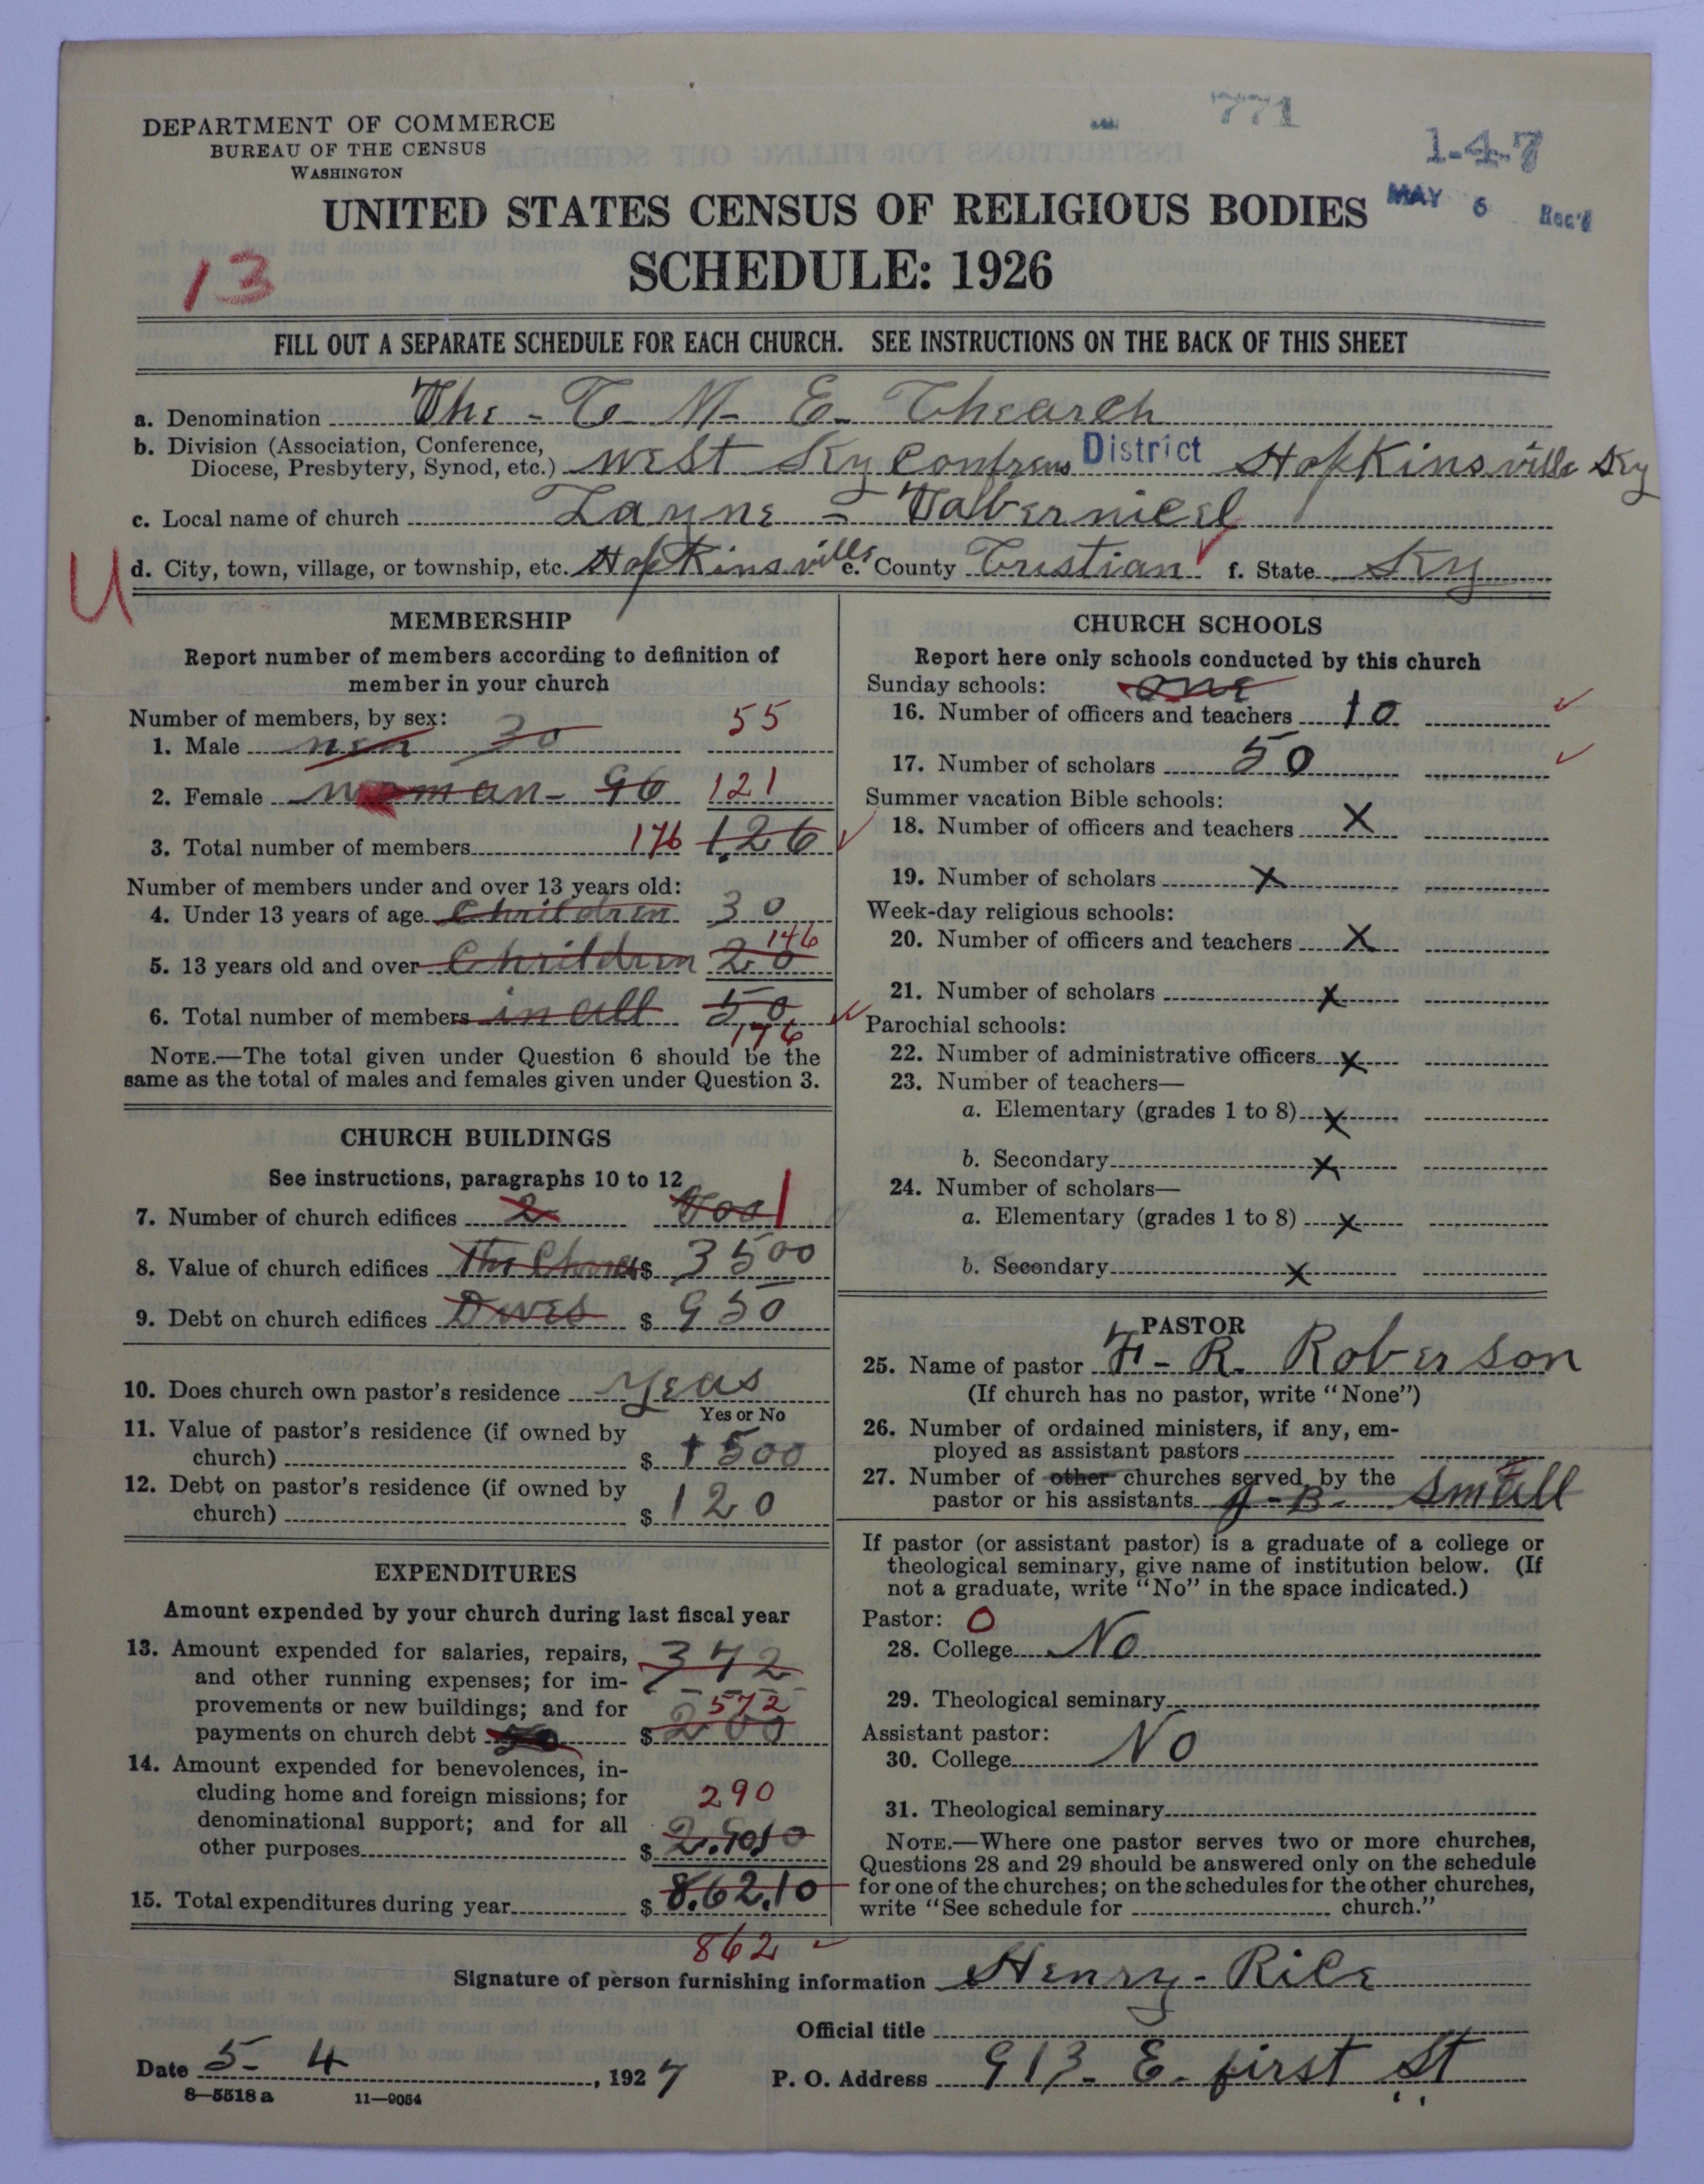 771
1-4-7
MAY 6 Rec'd
DEPARTMENT OF COMMERCE
BUREAU OF THE CENSUS
WASHINGTON
UNITED STATES CENSUS OF RELIGIOUS BODIES
SCHEDULE: 1926
13
FILL OUT A SEPARATE SCHEDULE FOR EACH CHURCH. SEE INSTRUCTIONS ON THE BACK OF THIS SHEET
a. Denomination The - C M - E - Chearch
b. Division (Association, Conference,
Diocese, Presbytery, Synod, etc.) West Ky District HopKinsville Ky
c. Local name of church Layne - Tabernicel
U
d. City, town, village, or township, etc. HopKinsville e. County Cristian f. State Ky
MEMBERSHIP
Report number of members according to definition of
member in your church
Number of members, by sex:
1. Male men 30 55
2. Female woman - 96 121
3. Total number of members 176 126
Number of members under and over 13 years old:
4. Under 13 years of age Chrildren 30
5. 13 years old and over Chrildren 20 146
6. Total number of members in all 50
176
NOTE.—The total given under Question 6 should be the
same as the total of males and females given under Question 3.
CHURCH BUILDINGS
See instructions, paragraphs 10 to 12
7. Number of church edifices 2 1
8. Value of church edifices $ 3500
9. Debt on church edifices $ 950
10. Does church own pastor's residence yeas
Yes or No
11. Value of pastor's residence (if owned by
church) $ 1500
12. Debt on pastor's residence (if owned by
church) $ 120
EXPENDITURES
Amount expended by your church during last fiscal year
13. Amount expended for salaries, repairs,
and other running expenses; for im-
provements or new buildings; and for
payments on church debt $ 372 572 200
14. Amount expended for benevolences, in-
cluding home and foreign missions; for
denominational support; and for all
other purposes $ 290
15. Total expenditures during year $ 862.10
862
CHURCH SCHOOLS
Report here only schools conducted by this church
Sunday schools: one
16. Number of officers and teachers 10
17. Number of scholars 50
Summer vacation Bible schools:
18. Number of officers and teachers X
19. Number of scholars X
Week-day religious schools:
20. Number of officers and teachers X
21. Number of scholars X
Parochial schools:
22. Number of administrative officers X
23. Number of teachers—
a. Elementary (grades 1 to 8) X
b. Secondary X
24. Number of scholars—
a. Elementary (grades 1 to 8) X
b. Secondary X
PASTOR
25. Name of pastor F - R. Roberson
(If church has no pastor, write "None")
26. Number of ordained ministers, if any, em-
ployed as assistant pastors
27. Number of other churches served by the
pastor or his assistants B. Smeall
If pastor (or assistant pastor) is a graduate of a college or
theological seminary, give name of institution below. (If
not a graduate, write "No" in the space indicated.)
Pastor: O
28. College No
29. Theological seminary
Assistant pastor:
30. College No
31. Theological seminary
NOTE.—Where one pastor serves two or more churches,
Questions 28 and 29 should be answered only on the schedule
for one of the churches; on the schedules for the other churches,
write "See schedule for church."
Signature of person furnishing information Henry - Rice
Official title
Date 5 - 4, 1927 P. O. Address 913 - E. first St
8—5518 a 11—9054